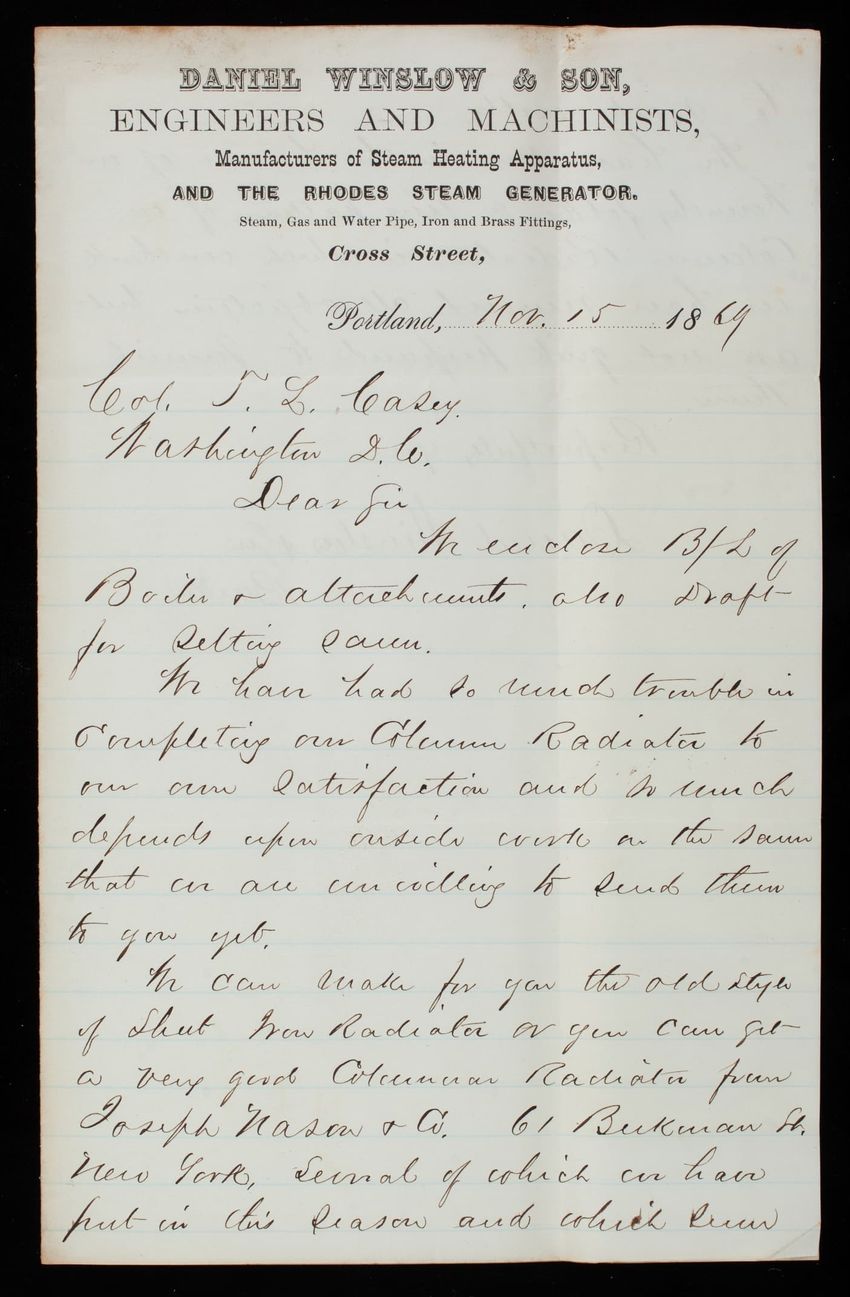 DANIEL WINSLOW & SON,
ENGINEERS AND MACHINISTS,
Manufacturers of Steam Heating Apparatus,
AND THE RHODES STEAM GENERATOR.
Steam, Gas and Water Pipe, Iron and Brass Fittings,
Cross Street,
Portland, Nov. 15 1869
Col. T. L. Casey.
Washington D.C.
Dear Sir
We enclose B/L of
Boiler & attachments, also Draft
for setting same.
We have had so much trouble in
completing our Column Radiator to
our own satisfaction and so much
depends upon outside work on the same
that we are unwilling to send them
to you yet.
We can make for you the old style
of Sheet Iron Radiator or you can get
a very good Columnar Radiator from
Joseph Nason & Co. 61 Beekman St.
New York, Several of which we have
put in this season and which seem